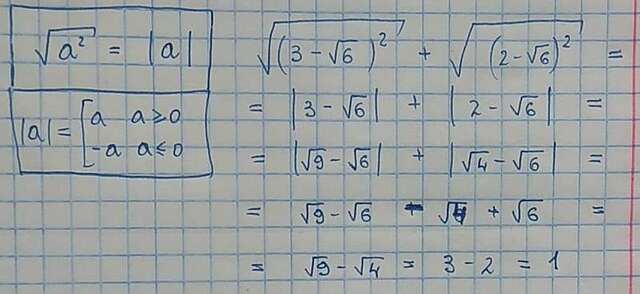 √a² = |a|
|a| = [a a ≥ 0
-a a ≤ 0
√(3 - √6)² + √(2 - √6)² =
= |3 - √6| + |2 - √6| =
= |√9 - √6| + |√4 - √6| =
= √9 - √6 - √4 + √6 =
= √9 - √4 = 3 - 2 = 1